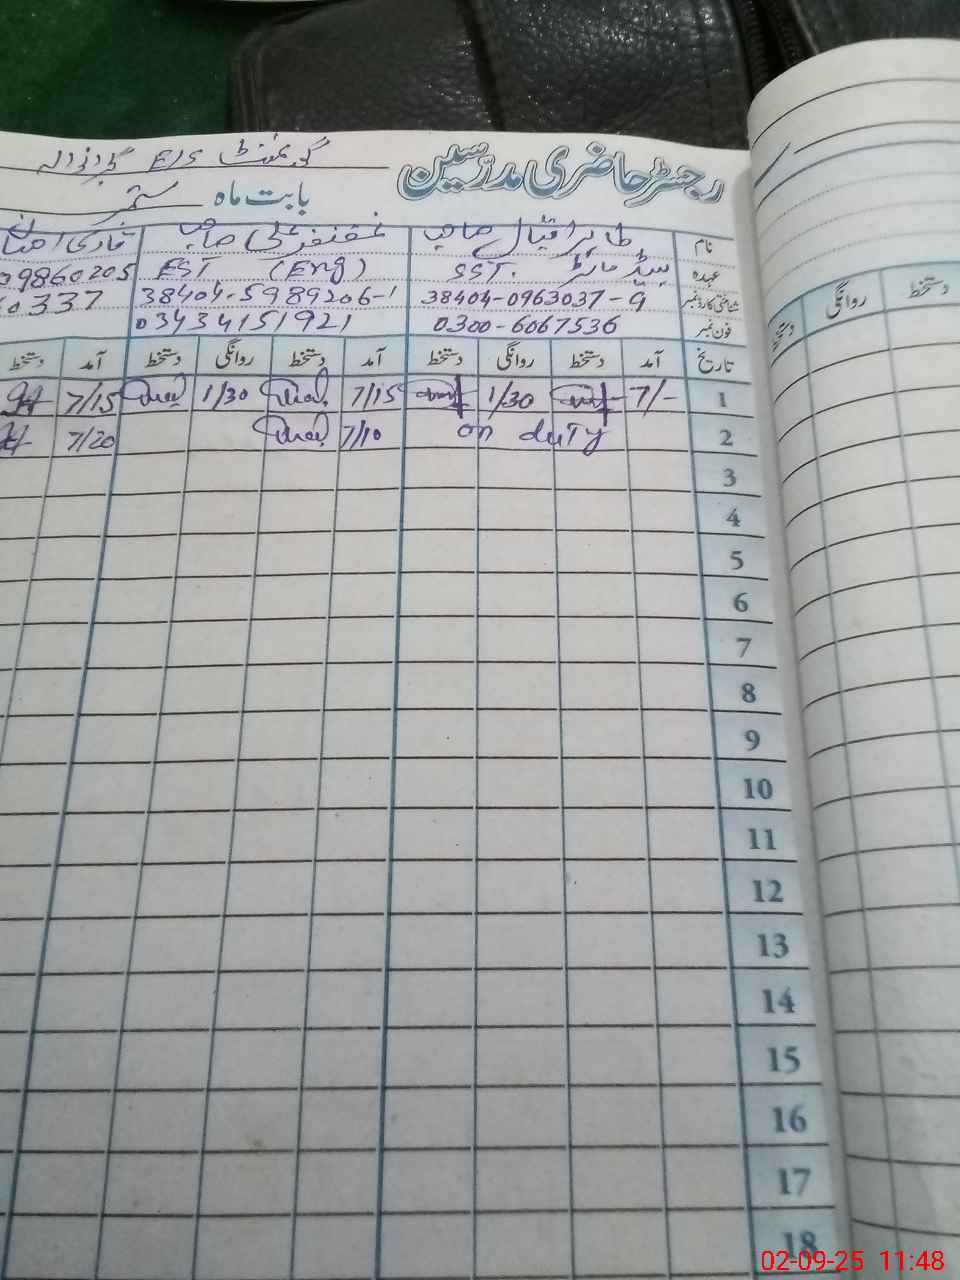 رجسٹر حاضری مدرسین
گورنمنٹ E/S
بابت ماہ ستمبر
نام طاہر اقبال صاحب غضنفر علی صاحب قاری
عہدہ SST. ہیڈ ماسٹر EST (Eng) 09860205
شناختی کارڈ نمبر 38404-0963037-9 38404-5989206-1 60337
فون نمبر 0300-6067536 03434151921
تاریخ آمد دستخط روانگی دستخط آمد دستخط روانگی دستخط آمد دستخط
1 7/- 1/30 7/15 1/30 7/15
2 on duty 7/10 7/20
3
4
5
6
7
8
9
10
11
12
13
14
15
16
17
18
دستخط روانگی دستخط
02-09-25 11:48